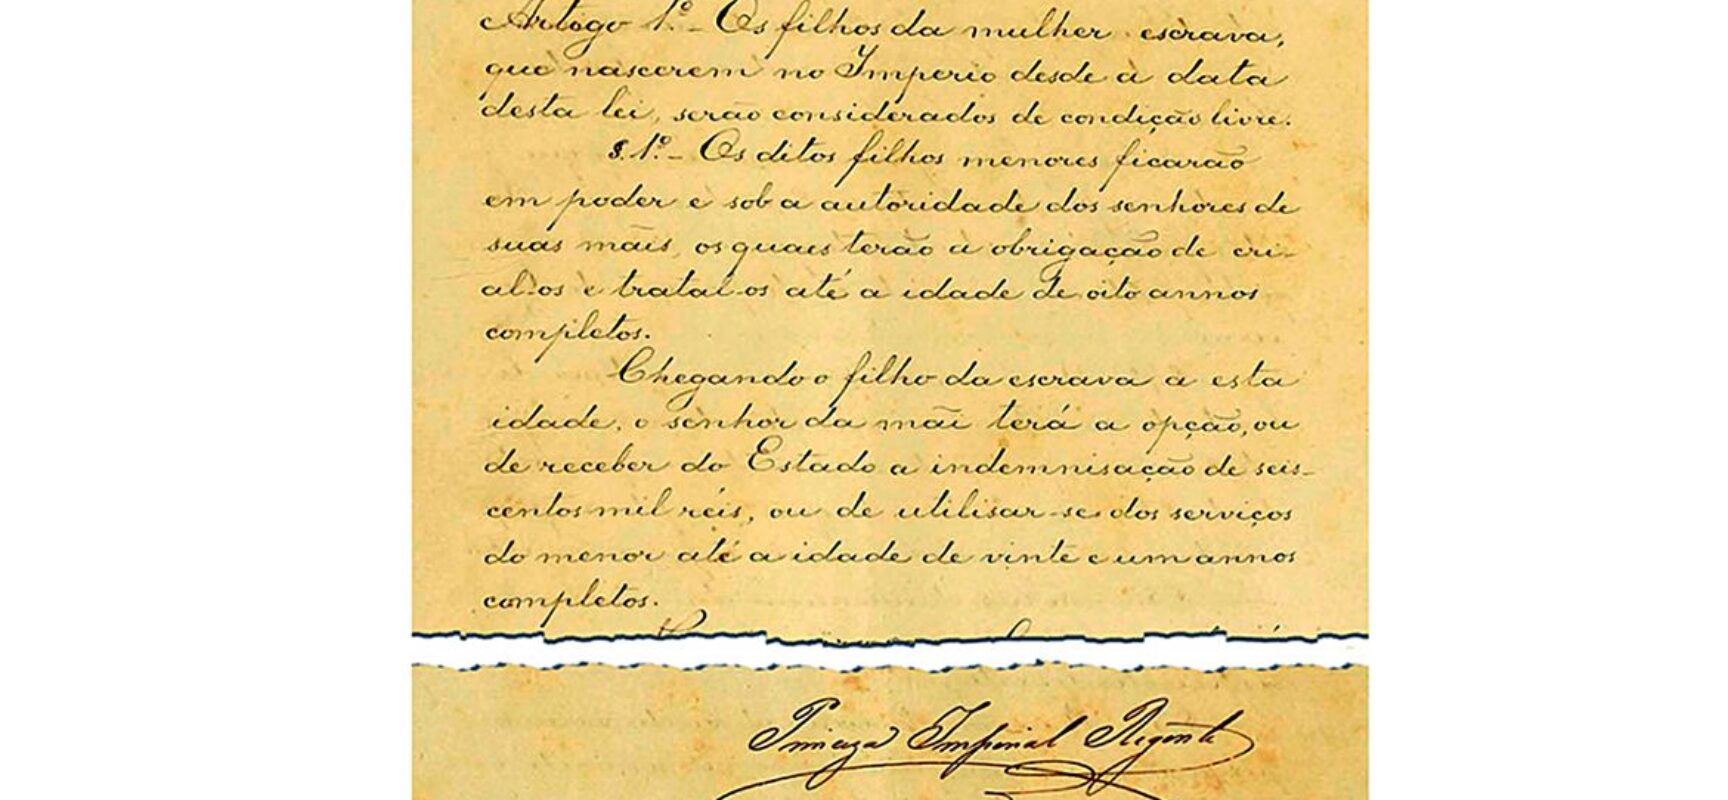 Artigo 1.º - Os filhos da mulher escrava,
que nascerem no Imperio desde a data
desta lei, serão considerados de condição livre.
§. 1.º - Os ditos filhos menores ficarão
em poder e sob a autoridade dos senhores de
suas mãis, os quaes terão a obrigação de cri-
al-os e tratal-os até a idade de oito annos
completos.
Chegando o filho da escrava a esta
idade, o senhor da mãi terá a opção, ou
de receber do Estado a indemnisação de seis-
centos mil réis, ou de utilisar-se dos serviços
do menor até a idade de vinte e um annos
completos.
Princeza Imperial Regente